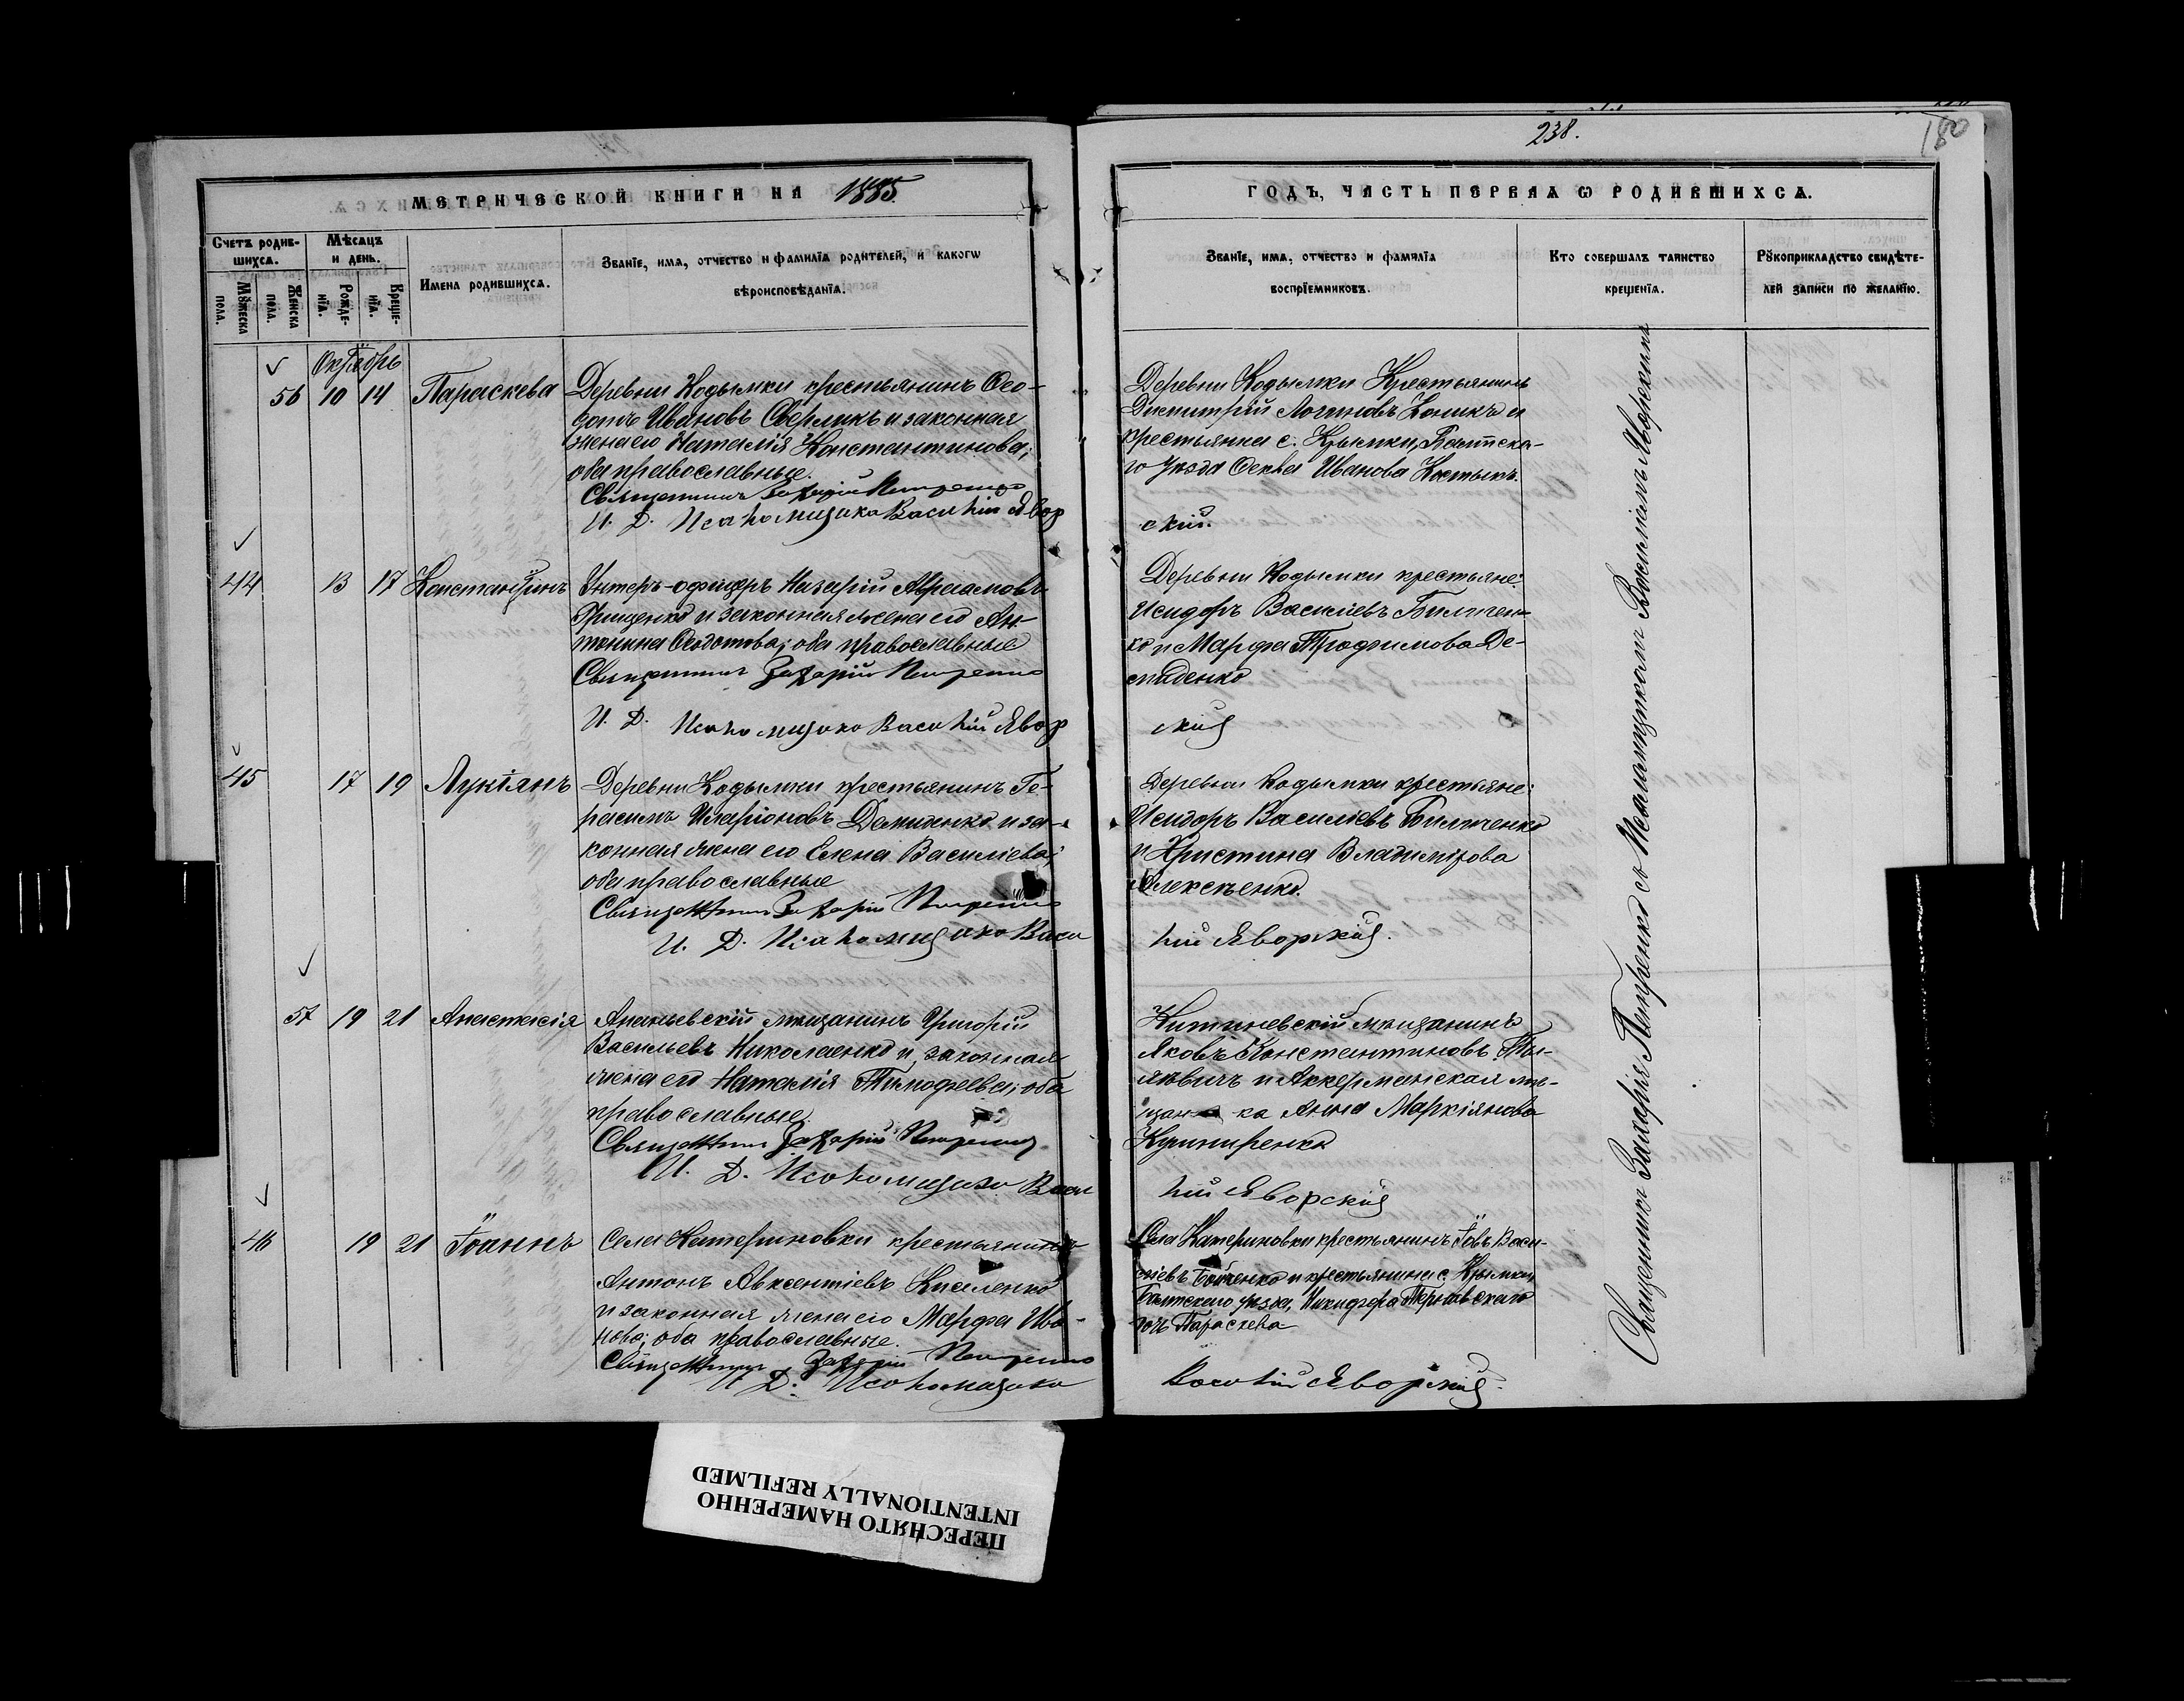 238.
180
МЕТРИЧЕСКОЙ КНИГИ НА 1885
ГОДЪ, ЧАСТЬ ПЕРВАЯ Ѡ РОДИВШИХСЯ.
Счетъ родив-
шихся.
Мѣсяцъ
и день.
Мꙋжеска
пола.
Женска
пола.
Рожде-
нїя.
Креще-
нїя.
Имена родившихся.
Званїе, имя, отчество и фамилїя родителей, и какогѡ
вѣроисповѣданїя.
Званїе, имя, отчество и фамилїя
воспрїемниковъ.
Кто совершалъ таинство
крещенїя.
Рꙋкоприкладство свидѣте-
лей записи по желанїю.
Октябрь
56 10 14 Параскева
Деревни Кодымки крестьянинъ Ѳео-
дотъ Ивановъ Сверликъ и законная
жена его Наталія Константинова;
оба православные.
Священникъ Захарій Петренко
И. Д. Псаломщика Василій Явор
Деревни Кодымки Крестьянинъ
Димитрій Логиновъ Коникъ и
крестьянка с. Крымки, Балтска-
го уѣзда Ѳекла Иванова Костыкъ.
скій.
44 13 17 Константинъ
Унтеръ-офицеръ Назарій Авраамовъ
Грищенко и законная жена его Ан-
тонина Ѳедотова; оба православные
Священникъ Захарій Петренко
И. Д. Псаломщика Василій Явор
Деревни Кодымки крестьяне:
Исидоръ Василіевъ Билычен-
ко и Марфа Трофимова Де-
миденко
скій
45 17 19 Лукіянъ
Деревни Кодымки крестьянинъ Ге-
расимъ Иларіоновъ Демиденко и за-
конная жена его Елена Василіева;
оба православные
Священникъ Захарій Петренко
И. Д. Псаломщика Васи
Деревни Кодымки крестьяне:
Исидоръ Василіевъ Билыченко
и Христина Владимірова
Алексѣенко.
лій Яворскій.
57 19 21 Анастасія
Ананьевскій мѣщанинъ Григорій
Васильевъ Николаенко и законная
жена его Наталія Тимофеева; оба
православные.
Священникъ Захарій Петренко
И. Д. Псаломщика Васи
Кишиневскій мѣщанинъ
Яковъ Константиновъ
и Аккерманская мѣ-
щан-ка Анна Маркіянова
Кушниренко
лій Яворскій
46 19 21 Іоаннъ
Села Катериновки крестьянинъ
Антонъ Авксентіевъ Киселенко
и законная жена его Марфа Ива-
нова; оба православные.
Священникъ Захарій Петренко
И Д. Псаломщика
Села Катериновки крестьянинъ Іовъ Васи-
ліевъ Бойченко и крестьянина с. Крымки,
Балтскаго уѣзда, Никифора Терновскаго
дочь Параскева
Василій Яворскій.
Священникъ Захарія Петренко съ Псаломщикомъ Василіемъ Яворскимъ
ПЕРЕСНЯТО НАМЕРЕННО
INTENTIONALLY REFILMED